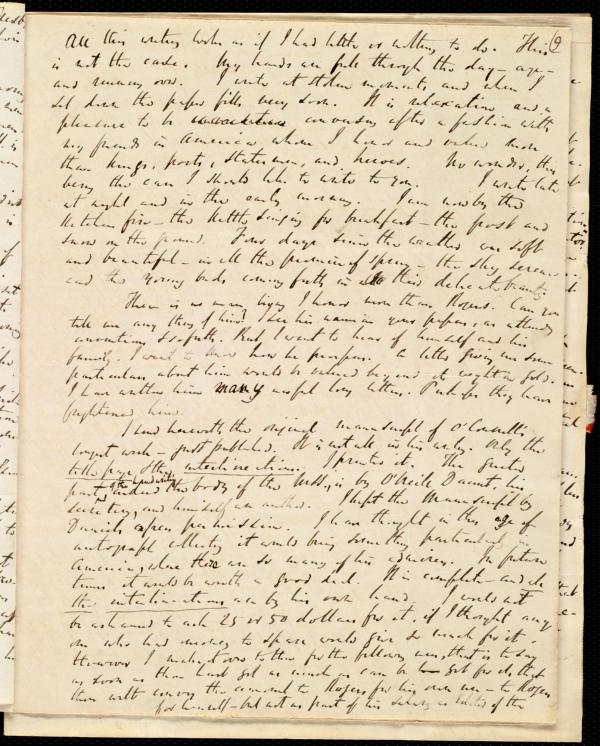 All this writing looks as if I had little or nothing to do. This 9
is not the case. My hands are full through the day - aye -
and running over. I write at stolen moments, and when I
sit down the paper fills very soon. It is relaxation and a
pleasure to be conversing after a fashion with
my friends in America whom I honor and value more
than Kings, poets, statesmen, and heroes. No wonder, this
being the case I should like to write to you. I write late
at night and in the early morning. I am now by the
Kitchen fire - the Kettle singing for breakfast - the frost and
snow on the ground. Four days since the weather was soft
and beautiful - in all the promise of Spring - the sky serene
and the young buds coming forth in all their delicate beauty.
There is no man living I honor more than Rogers. Can you
tell me any thing of him? I see his name in your papers, as attending
conventions & so forth. But I want to hear of himself and his
family. I want to know how he prospers. A letter giving me some
particulars about him would be valued beyond its weight in gold.
I have written him many awful long letters. Perhaps they have
frightened him.
I send herewith the original manuscript of O'Connell's
longest work - just published. It is not all in his writing. Only the
title page, & the interlineations. I printed it. The greater
part indeed the body of the MSS, is by O'Neill Daunt, his
secretary, and himself an author. I kept the Manuscript by
Daniel's open permission. I have thought in this age of
autograph collecting it would bring something particularly in
America, where there are so many of his admirers. In future
times it would be worth a good deal. It is complete - and all
the interlineations are by his own hand. I would not
be ashamed to ask 25 or 50 dollars for it, if I thought any
one who had money to spare would give so much for it.
However I make it over to thee for the following uses, that is to say
as soon as thou hast got as much as can be got for it, that
thou wilt convey the amount to Rogers for his own use - to Rogers
for himself - but not as part of his salary as Editor of the